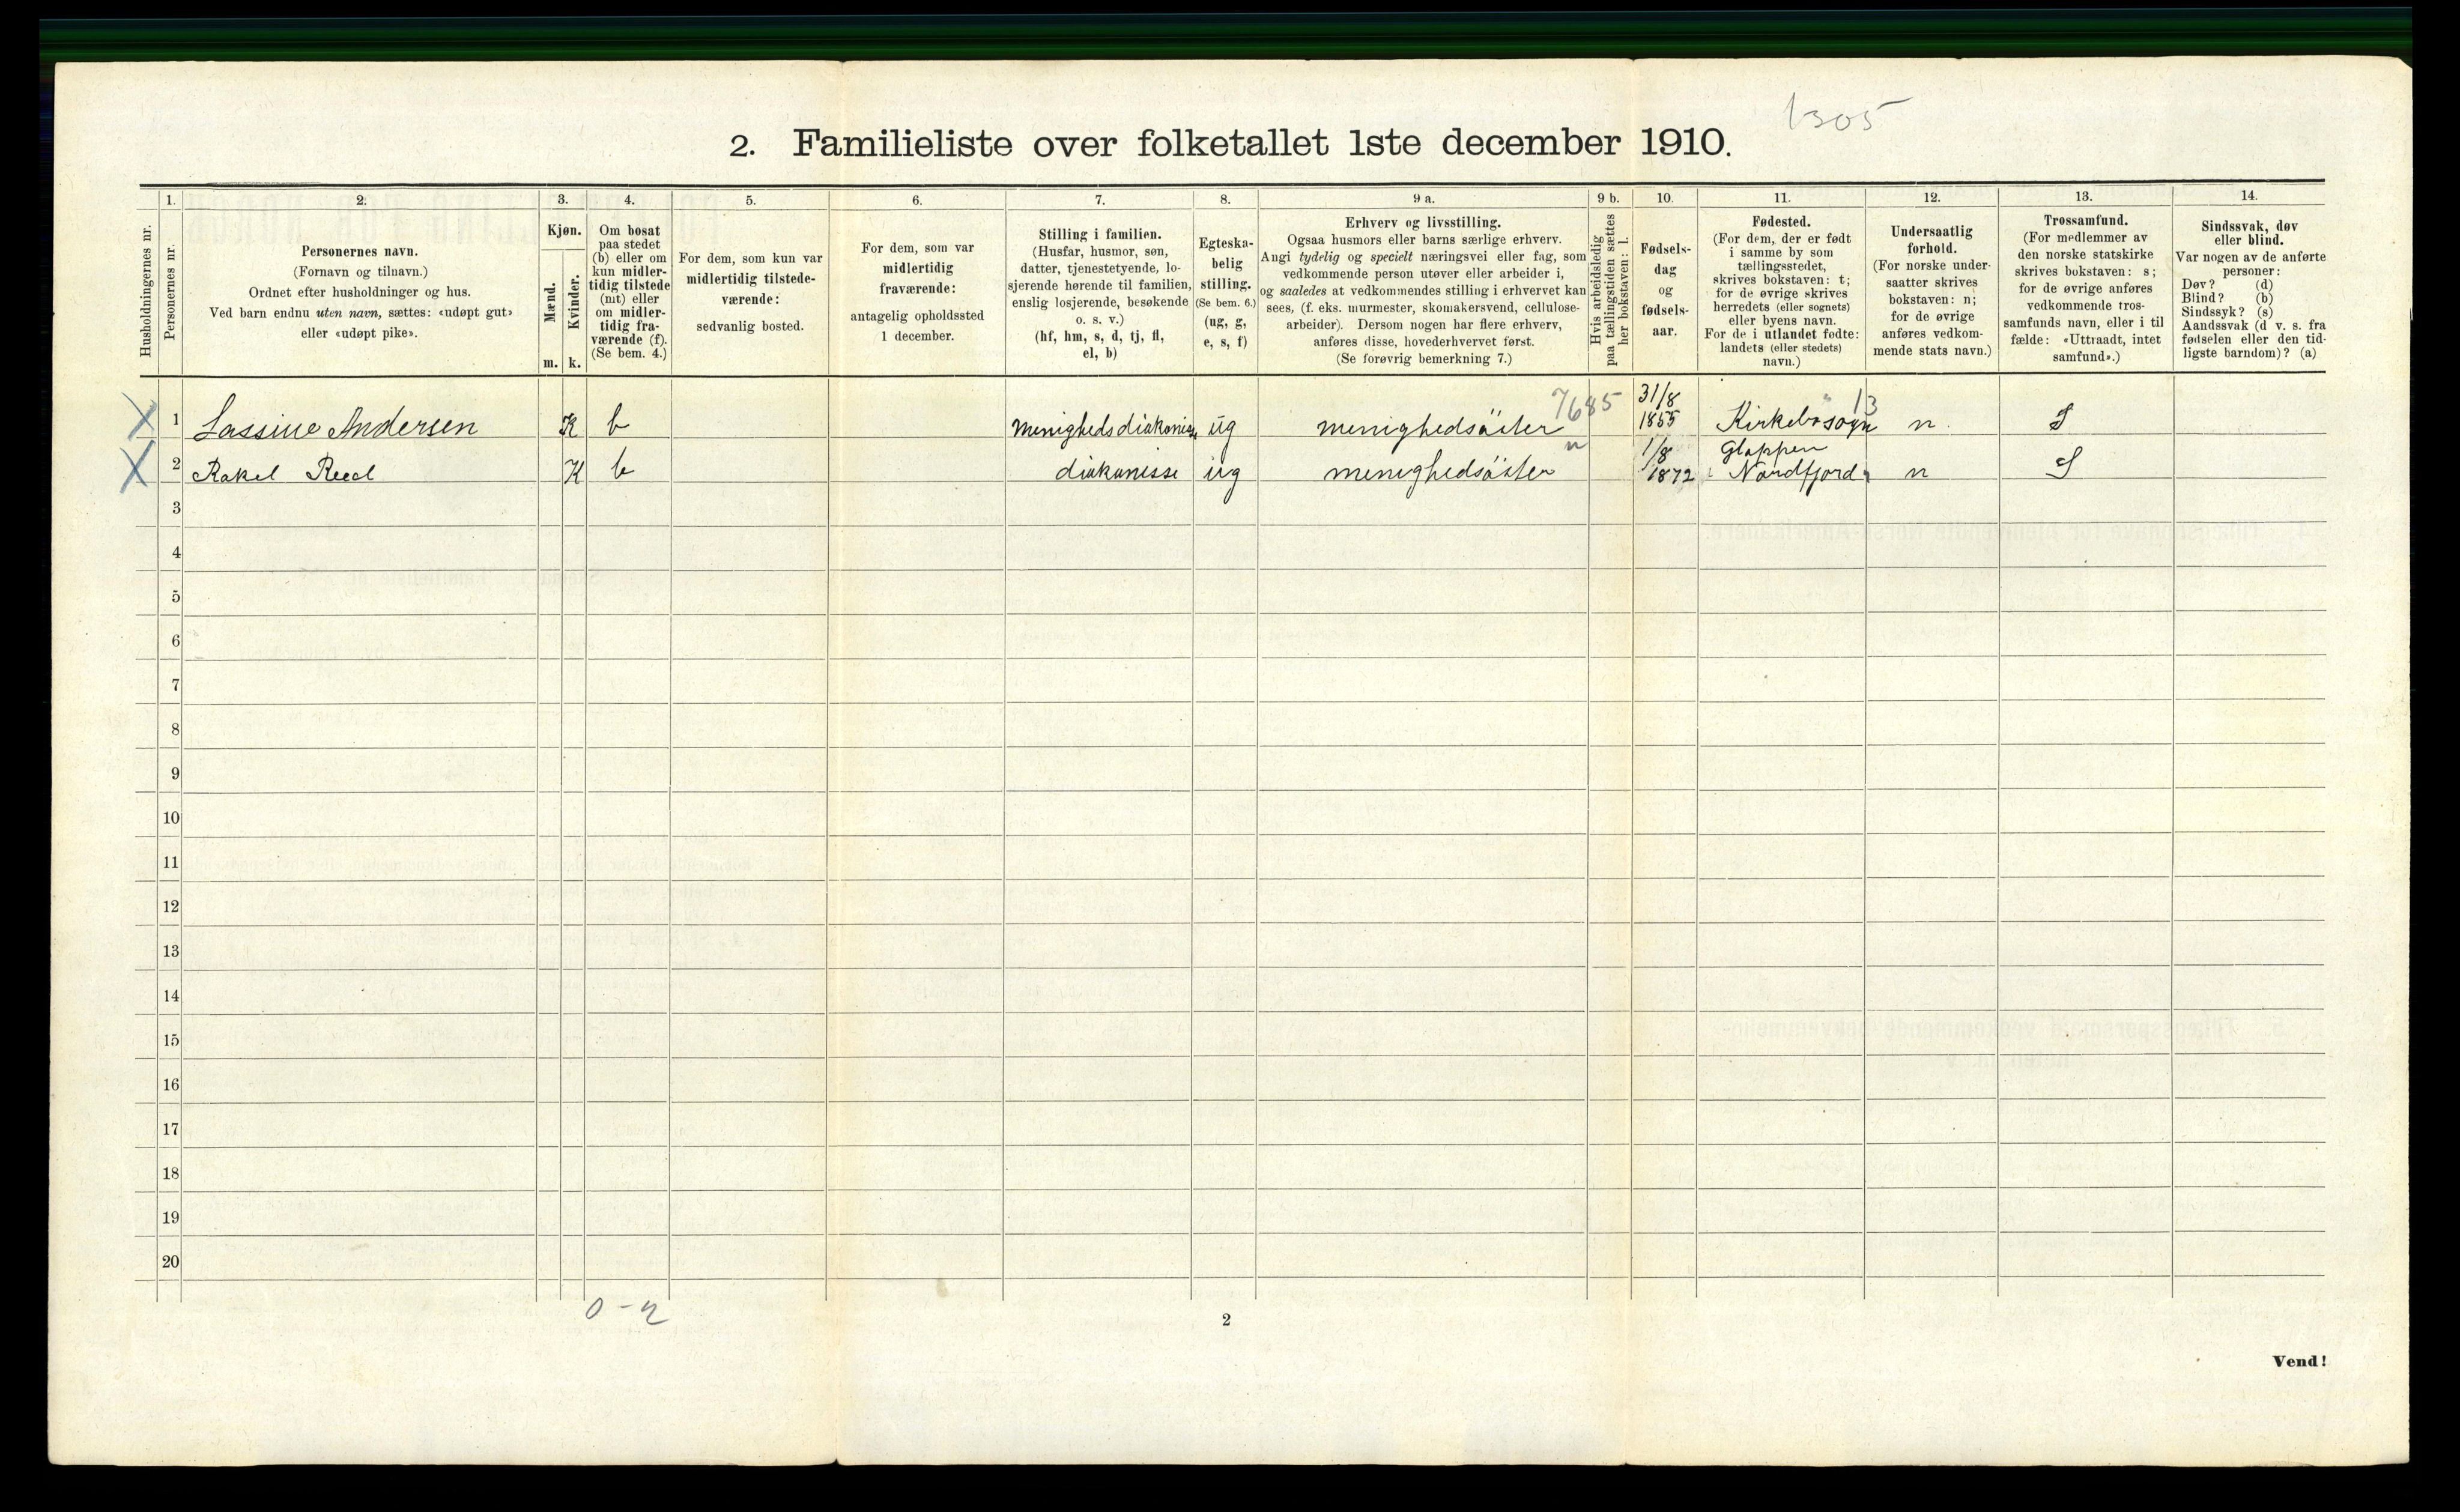 1305
2. Familieliste over folketallet 1ste december 1910.
Husholdningernes nr.
1.
Personernes nr.
2.
Personernes navn.
(Fornavn og tilnavn.)
Ordnet efter husholdninger og hus.
Ved barn endnu uten navn, sættes: «udøpt gut»
eller «udøpt pike».
3.
Kjøn.
Mænd.
m.
Kvinder.
k.
4.
Om bosat
paa stedet
(b) eller om
kun midler-
tidig tilstede
(mt) eller
om midler-
tidig fra-
værende (f).
(Se bem. 4.)
5.
For dem, som kun var
midlertidig tilstede-
værende:
sedvanlig bosted.
6.
For dem, som var
midlertidig
fraværende:
antagelig opholdssted
1 december.
7.
Stilling i familien.
(Husfar, husmor, søn,
datter, tjenestetyende, lo-
sjerende hørende til familien,
enslig losjerende, besøkende
o. s. v.)
(hf, hm, s, d, tj, fl,
el, b)
8.
Egteska-
belig
stilling.
(Se bem. 6.)
(ug, g,
e, s, f)
9 a.
Erhverv og livsstilling.
Ogsaa husmors eller barns særlige erhverv.
Angi tydelig og specielt næringsvei eller fag, som
vedkommende person utøver eller arbeider i,
og saaledes at vedkommendes stilling i erhvervet kan
sees, (f. eks. murmester, skomakersvend, cellulose-
arbeider). Dersom nogen har flere erhverv,
anføres disse, hovederhvervet først.
(Se forøvrig bemerkning 7.)
9 b.
Hvis arbeidsledig
paa tællingstiden sættes
her bokstaven: l.
10.
Fødsels-
dag
og
fødsels-
aar.
11.
Fødested.
(For dem, der er født
i samme by som
tællingsstedet,
skrives bokstaven: t;
for de øvrige skrives
herredets (eller sognets)
eller byens navn.
For de i utlandet fødte:
landets (eller stedets)
navn.)
12.
Undersaatlig
forhold.
(For norske under-
saatter skrives
bokstaven: n;
for de øvrige
anføres vedkom-
mende stats navn.)
13.
Trossamfund.
(For medlemmer av
den norske statskirke
skrives bokstaven: s;
for de øvrige anføres
vedkommende tros-
samfunds navn, eller i til
fælde: «Uttraadt, intet
samfund».)
14.
Sindssvak, døv
eller blind.
Var nogen av de anførte
personer:
Døv? (d)
Blind? (b)
Sindssyk? (s)
Aandssvak (d v. s. fra
fødselen eller den tid-
ligste barndom)? (a)
X 1 Lassine Andersen K b Menighedsdiakonisse ug menighedsöster 7685 31/8 1855 Kirkebösogn 13 n. S
X 2 Rakel Reed K b diakonisse ug menighedsöster n 1/8 1872 Gloppen i Nordfjord n S
3
4
5
6
7
8
9
10
11
12
13
14
15
16
17
18
19
20
0-2
2
Vend!